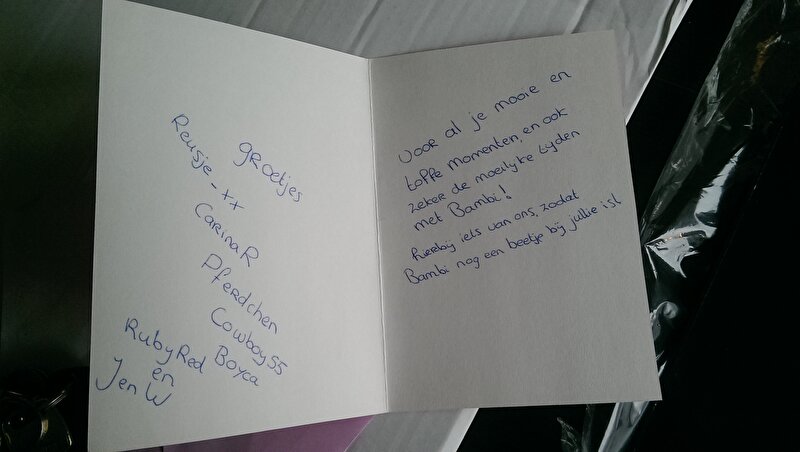 groetjes
Reusje_xx
CarinaR
Pferdchen
Cowboy55
RubyRed Boyca
en
Jen W
Voor al je mooie en
toffe momenten, en ook
zeker de moeilijke tijden
met Bambi!
Hierbij iets van ons, zodat
Bambi nog een beetje bij jullie is!